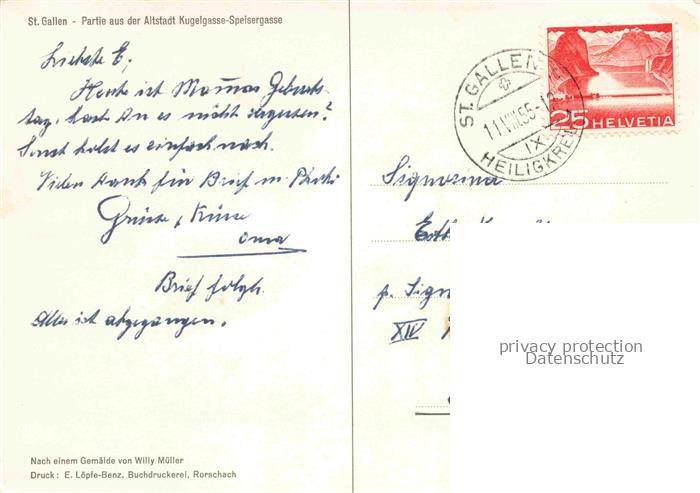 St. Gallen - Partie aus der Altstadt Kugelgasse-Speisergasse
Liebste E,
Heute ist Mamas Geburts-
tag, hast Du es nicht vergessen?
Sonst holst es einfach nach.
Vielen Dank für Brief m. Photo
Grüsse, Küsse
Oma
Brief folgt.
Alles ist abgegangen.
Nach einem Gemälde von Willy Müller
Druck: E. Löpfe-Benz, Buchdruckerei, Rorschach
ST. GALLEN
11.VIII.55-1
IX
HEILIGKREUZ
25 HELVETIA
Signorina
p. Sign
XIV
privacy protection
Datenschutz